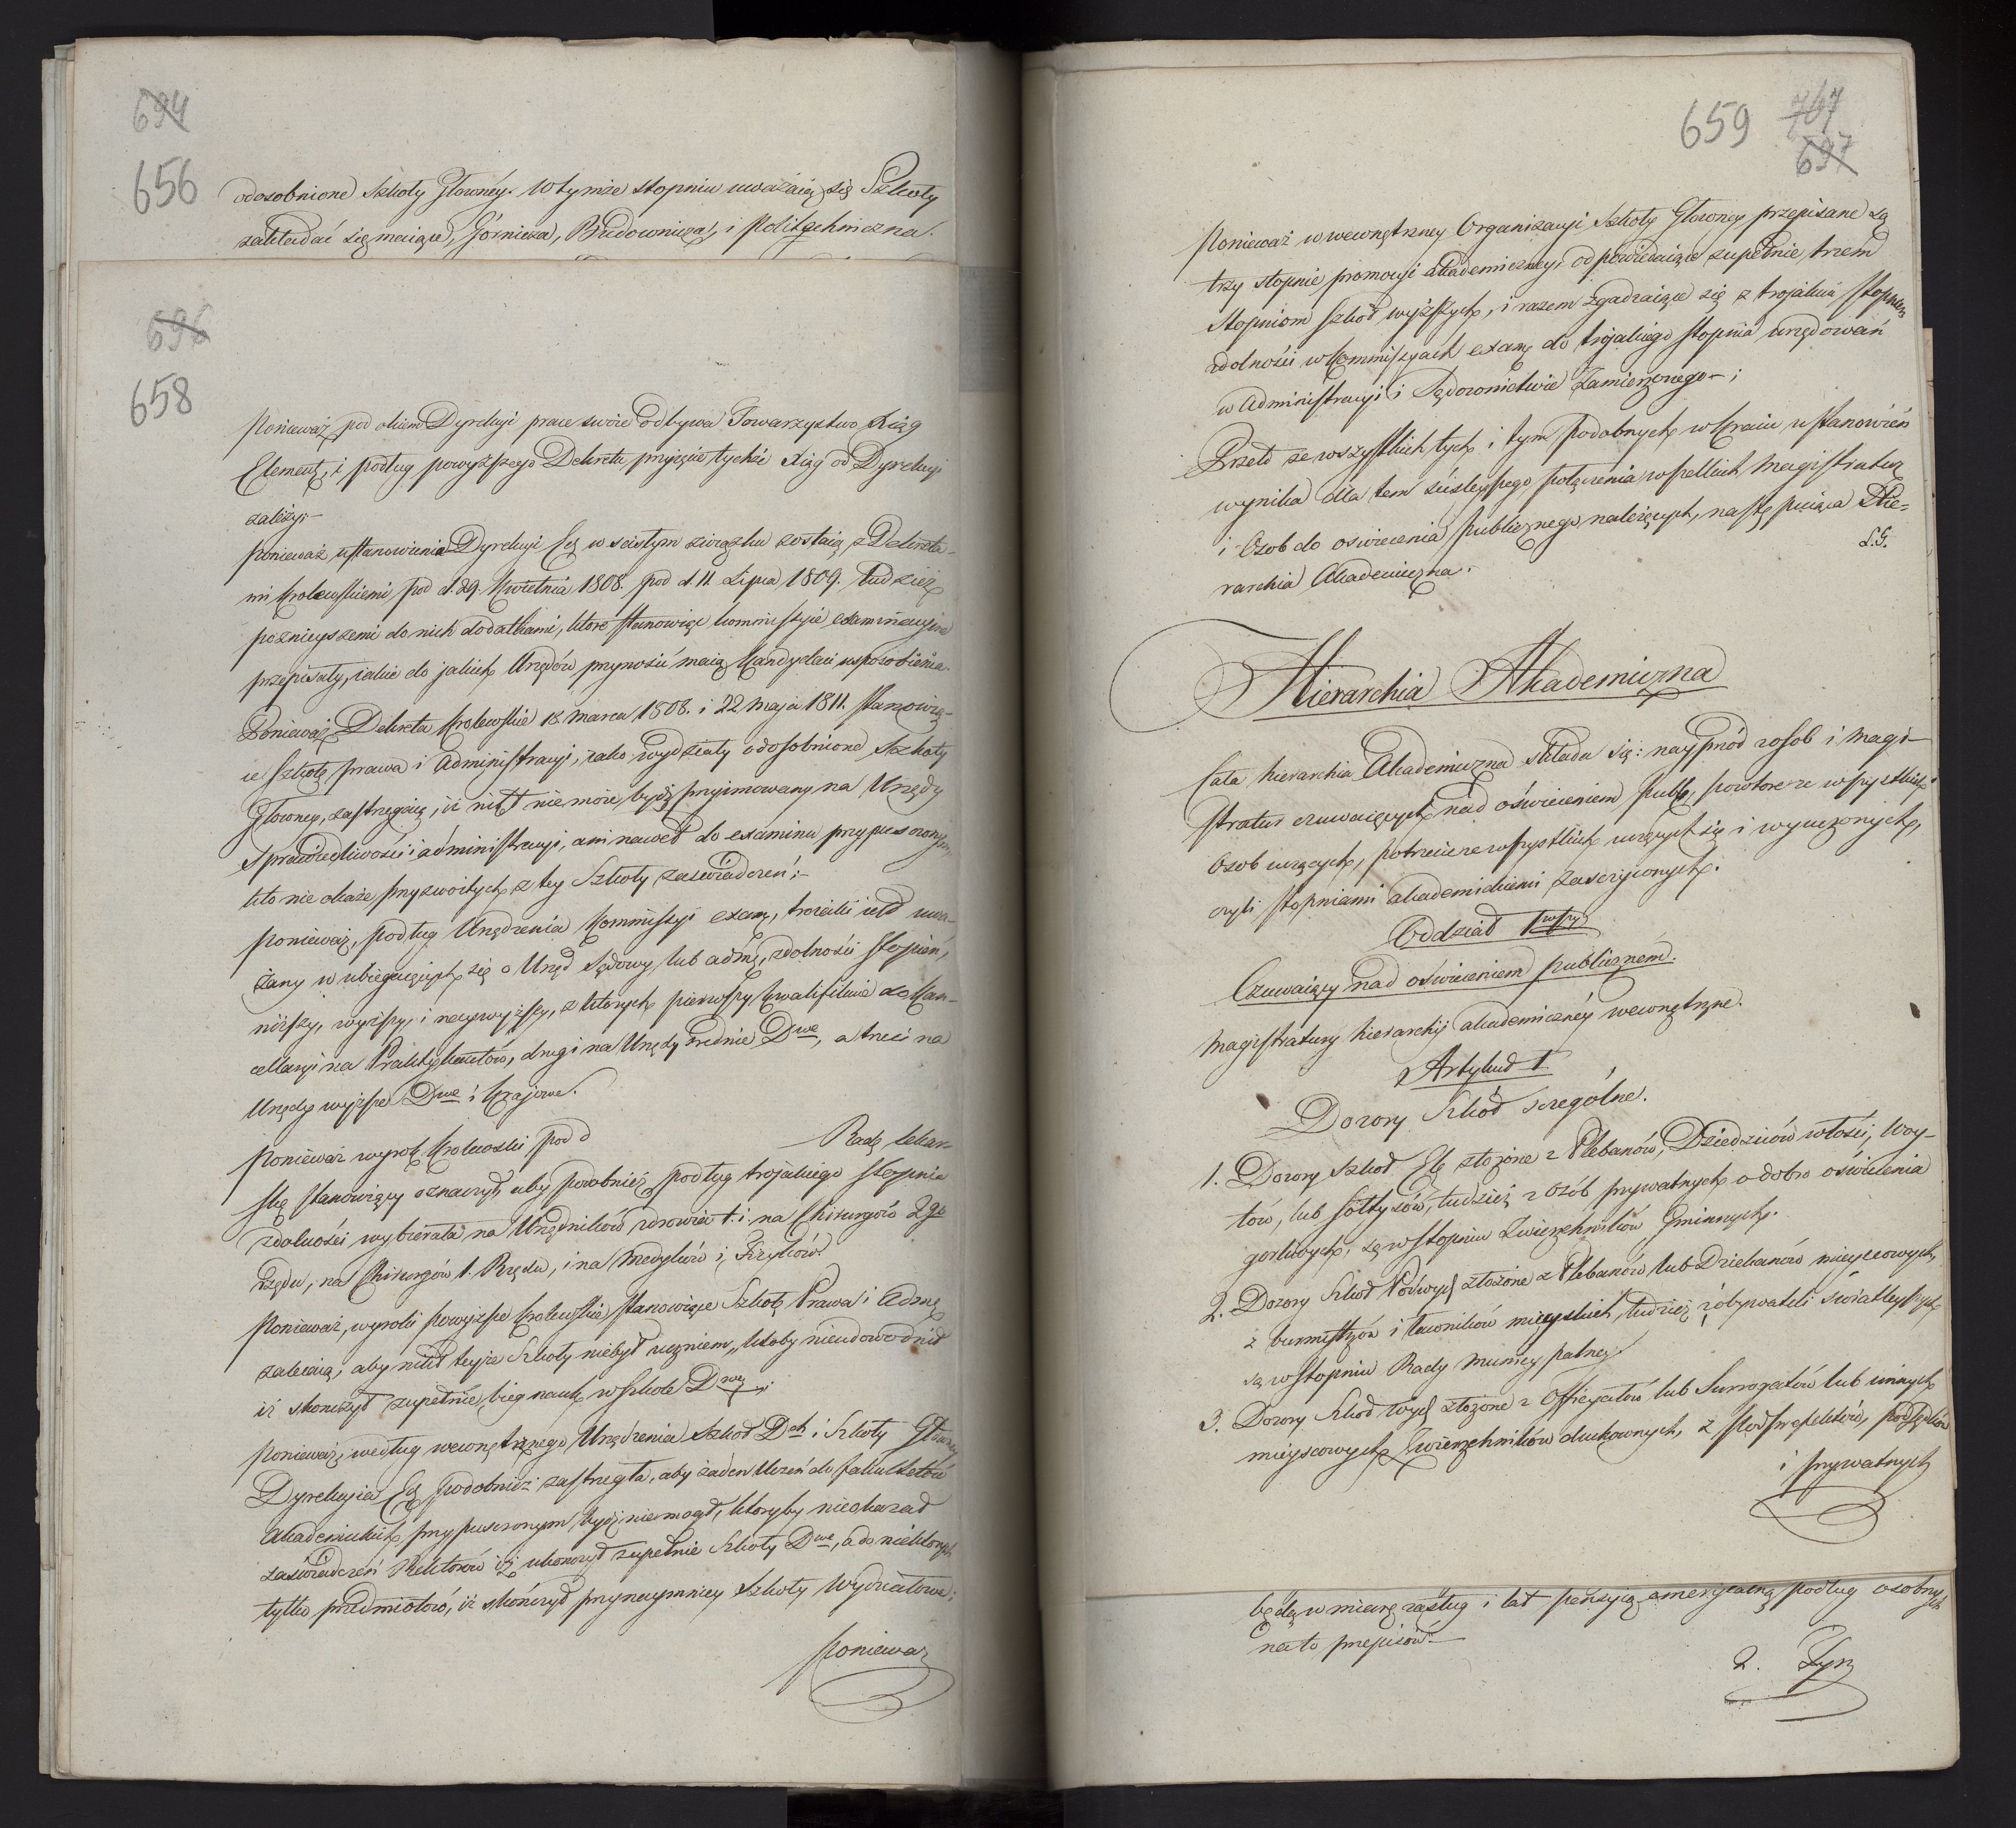 694
656
odosobnione Szkoły Głowney. W tymże stopniu uważaią się Szkoły
zakładać się maiące, Górnicza, Budownicza, i Politechniczna.
696
658
Ponieważ pod okiem Dyrekcyi prace swoie odbywa Towarzystwo Xiąg
Element, i podług powyższego Dekretu przyięcie tychże Xiąg od Dyrekcyi
zależy;
Ponieważ ustanowienia Dyrekcyi Ed w ścisłym związku zostaią z Dekreta-
mi Krolewskiemi pod d. 29. Kwietnia 1808. pod d 11 Lipca 1809. tudzież
poznieyszemi do nich dodatkami, ktore stanowiąc kommissyie examinacyine
przepisały, iakie do jakich Urzędów przynosić maią Kandydaci usposobienia.
Ponieważ Dekreta Krolewskie 18 Marca 1808. i 22 Maja 1811. stanowią-
ce Szkołę prawa i Administracyi, iako wydziały odosobnione Szkoły
Głowney, zastrzegaią, iż nikt nie może bydź przyimowany na Urzędy
Sprawiedliwości i administracyi, ani nawet do examinu przypuszczonym,
kto nie okaże przyzwoitych z tey Szkoły zaświadczeń;
Ponieważ, podług Urządzenia Kommissyi exam, troiaki iest uwa-
żany w ubiegaiących się o Urząd Sądowy lub adm, zdolności stopień,
niższy, wyższy, i naywyższy, z ktorych pierwszy kwalifikuie do Kan-
cellaryi na Praktykantów, drugi na Urzędy średnie D<sup>we</sup>, a trzeci na
Urzędy wyższe D<sup>we</sup> i Krajowe.
Ponieważ wyrok Krolewski pod d Radę lekar-
ską stanowiący oznaczył, aby podobnież podług trojakiego stopnia
zdolności wybierała na Urzędników zdrowia t. i. na Chirurgów 2<sup>go</sup>
rzędu, na Chirurgów 1. Rzędu, i na Medyków i Fizyków.
Ponieważ, wyroki powyższe Krolewskie stanowiące Szkołę Prawa i Adm
zalecaią, aby nikt teyże Szkoły niebył uczniem, ktoby nieudowodnił
iż skończył zupełnie bieg nauk w Szkole D<sup>wey</sup>;
Ponieważ, według wewnętrznego Urządzenia Szkoł D<sup>ch</sup> i Szkoły Główney
Dyrekcyia Ed podobnież zastrzegła, aby żaden Uczeń do fakultetów
Akademickich przypuszczonym bydź niemogł, ktoryby nieokazał
zaświadczeń Rektorów iż ukończył zupełnie Szkoły D<sup>we</sup>, a do niektorych
tylko przedmiotów, iż skończył przynaymniey Szkoły Wydziałowe;
Ponieważ
659
767
697
Ponieważ w wewnętrzney Organizacyi Szkoły Głowney przepisane są
trzy stopnie promocyi akademiczney, odpowiedaiące zupełnie trzem
stopniom Szkół wyższych, i razem zgadzaiące się z trojakim stopniem
zdolności w Kommissyach exam do trojakiego stopnia urzędowań
w Administracyi i Sądownictwie zamierzonego;
Przeto ze wszystkich tych i tym podobnych w Kraiu ustanowień
wynika dla tem ściśleyszego połączenia wszelkich Magistratur
i Osob do oświecenia publicznego należących, następuiąca Hie-
rarchia Akademiczna.
L.G.
Hierarchia Akademiczna
Cała hierarchia Akademiczna składa się: nayprzód z osob i Magi-
stratur czuwaiących nad oświeceniem publ, powtore ze wszystkich
Osob uczących, potrzecie ze wszystkich uczących się i wyuczonych,
czyli stopniami akademickiemi zaszczyconych.
Oddział 1<sup>wszy</sup>
Czuwaiący nad oświeceniem publicznem.
Magistratury hierarchii akademiczney wewnętrzne.
Artykuł 1.
Dozory Szkół szczególne.
1. Dozory Szkoł El złożone z Plebanów, Dziedziców włości, Woy-
tów, lub sołtysów, tudzież z osób prywatnych o dobro oświecenia
gorliwych, są w stopniu Zwierzchników Gminnych.
2. Dozory Szkoł Podwyd złożone z Plebanów lub Dziekanów mieyscowych,
z burmistrzów i ławników mieyskich, tudzież z obywateli światleyszych
są w stopniu Rady Municypalney.
3. Dozory Szkoł Wyd złożone z Officyałów lub Surrogatów lub innych
mieyscowych Zwierzchników duchownych, z Podprefektów, Podsędków
i prywatnych
będą w miarę zasług i lat pensyią emerycalną podług osobnych
na to przepisów.
2.